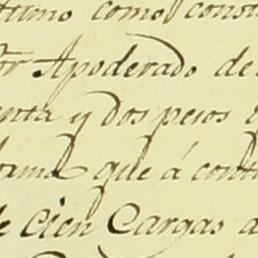 como const
Apoderado de
enta y dos pesos
que á cont
de Cien Cargas a